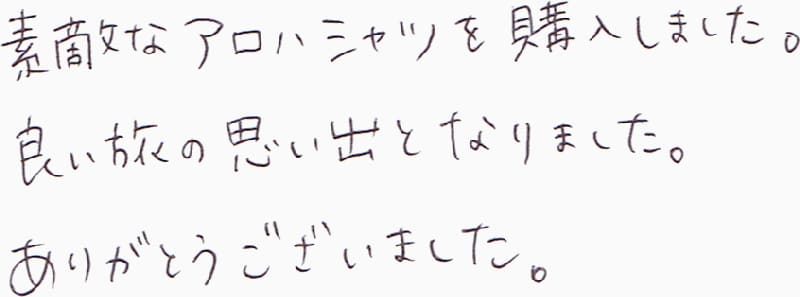 素敵なアロハシャツを購入しました。
良い旅の思い出となりました。
ありがとうございました。